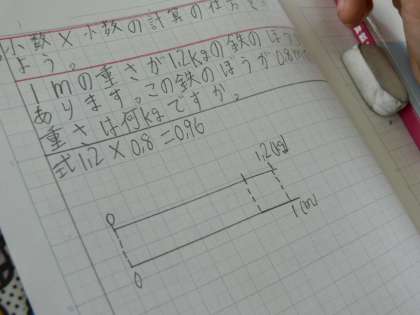 小数×小数の計算の仕方を
よう。
1mの重さが1.2kgの鉄のぼう
あります。この鉄のぼうが0.8m
重さは何kgですか。
式1.2×0.8=0.96
0 1.2(kg)
0 1(m)